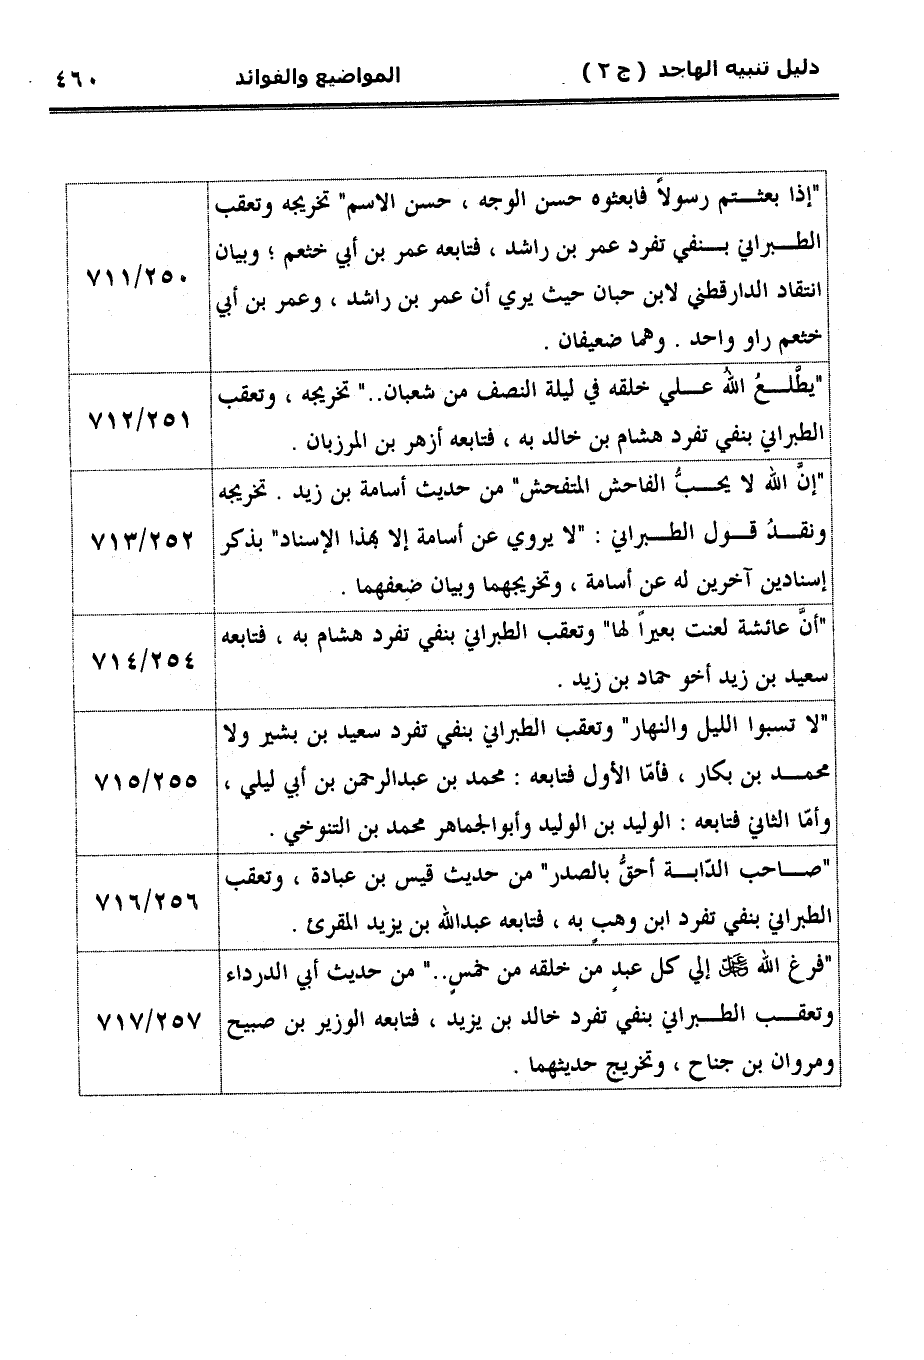 دليل تنبيه الهاجد ( ج ٢ ) المواضيع والفوائد ٤٦٠
"إذا بعثتم رسولاً فابعثوه حسن الوجه ، حسن الاسم" تخريجه وتعقب
الطبراني بنفي تفرد عمر بن راشد ، فتابعه عمر بن أبي خثعم ؛ وبيان
انتقاد الدارقطني لابن حبان حيث يري أن عمر بن راشد ، وعمر بن أبي
خثعم راو واحد . وهما ضعيفان .
٧١١/٢٥٠
"يطَّلعُ اللهُ علي خلقه في ليلة النصف من شعبان.." تخريجه ، وتعقب
الطبراني بنفي تفرد هشام بن خالد به ، فتابعه أزهر بن المرزبان .
٧١٢/٢٥١
"إنَّ الله لا يحبُّ الفاحش المتفحش" من حديث أسامة بن زيد . تخريجه
ونقدُ قول الطبراني : "لا يروي عن أسامة إلا بهذا الإسناد" بذكر
إسنادين آخرين له عن أسامة ، وتخريجهما وبيان ضعفهما .
٧١٣/٢٥٢
"أنَّ عائشة لعنت بعيراً لها" وتعقب الطبراني بنفي تفرد هشام به ، فتابعه
سعيد بن زيد أخو حماد بن زيد .
٧١٤/٢٥٤
"لا تسبوا الليل والنهار" وتعقب الطبراني بنفي تفرد سعيد بن بشير ولا
محمد بن بكار ، فأمّا الأول فتابعه : محمد بن عبدالرحمن بن أبي ليلي ،
وأمّا الثاني فتابعه : الوليد بن الوليد وأبوالجماهر محمد بن التنوخي .
٧١٥/٢٥٥
"صاحب الدّابة أحقُّ بالصدر" من حديث قيس بن عبادة ، وتعقب
الطبراني بنفي تفرد ابن وهبٍ به ، فتابعه عبدالله بن يزيد المقرئ .
٧١٦/٢٥٦
"فرغ الله ﷺ إلي كل عبدٍ من خلقه من خمسٍ.." من حديث أبي الدرداء
وتعقب الطبراني بنفي تفرد خالد بن يزيد ، فتابعه الوزير بن صبيح
ومروان بن جناح ، وتخريج حديثهما .
٧١٧/٢٥٧